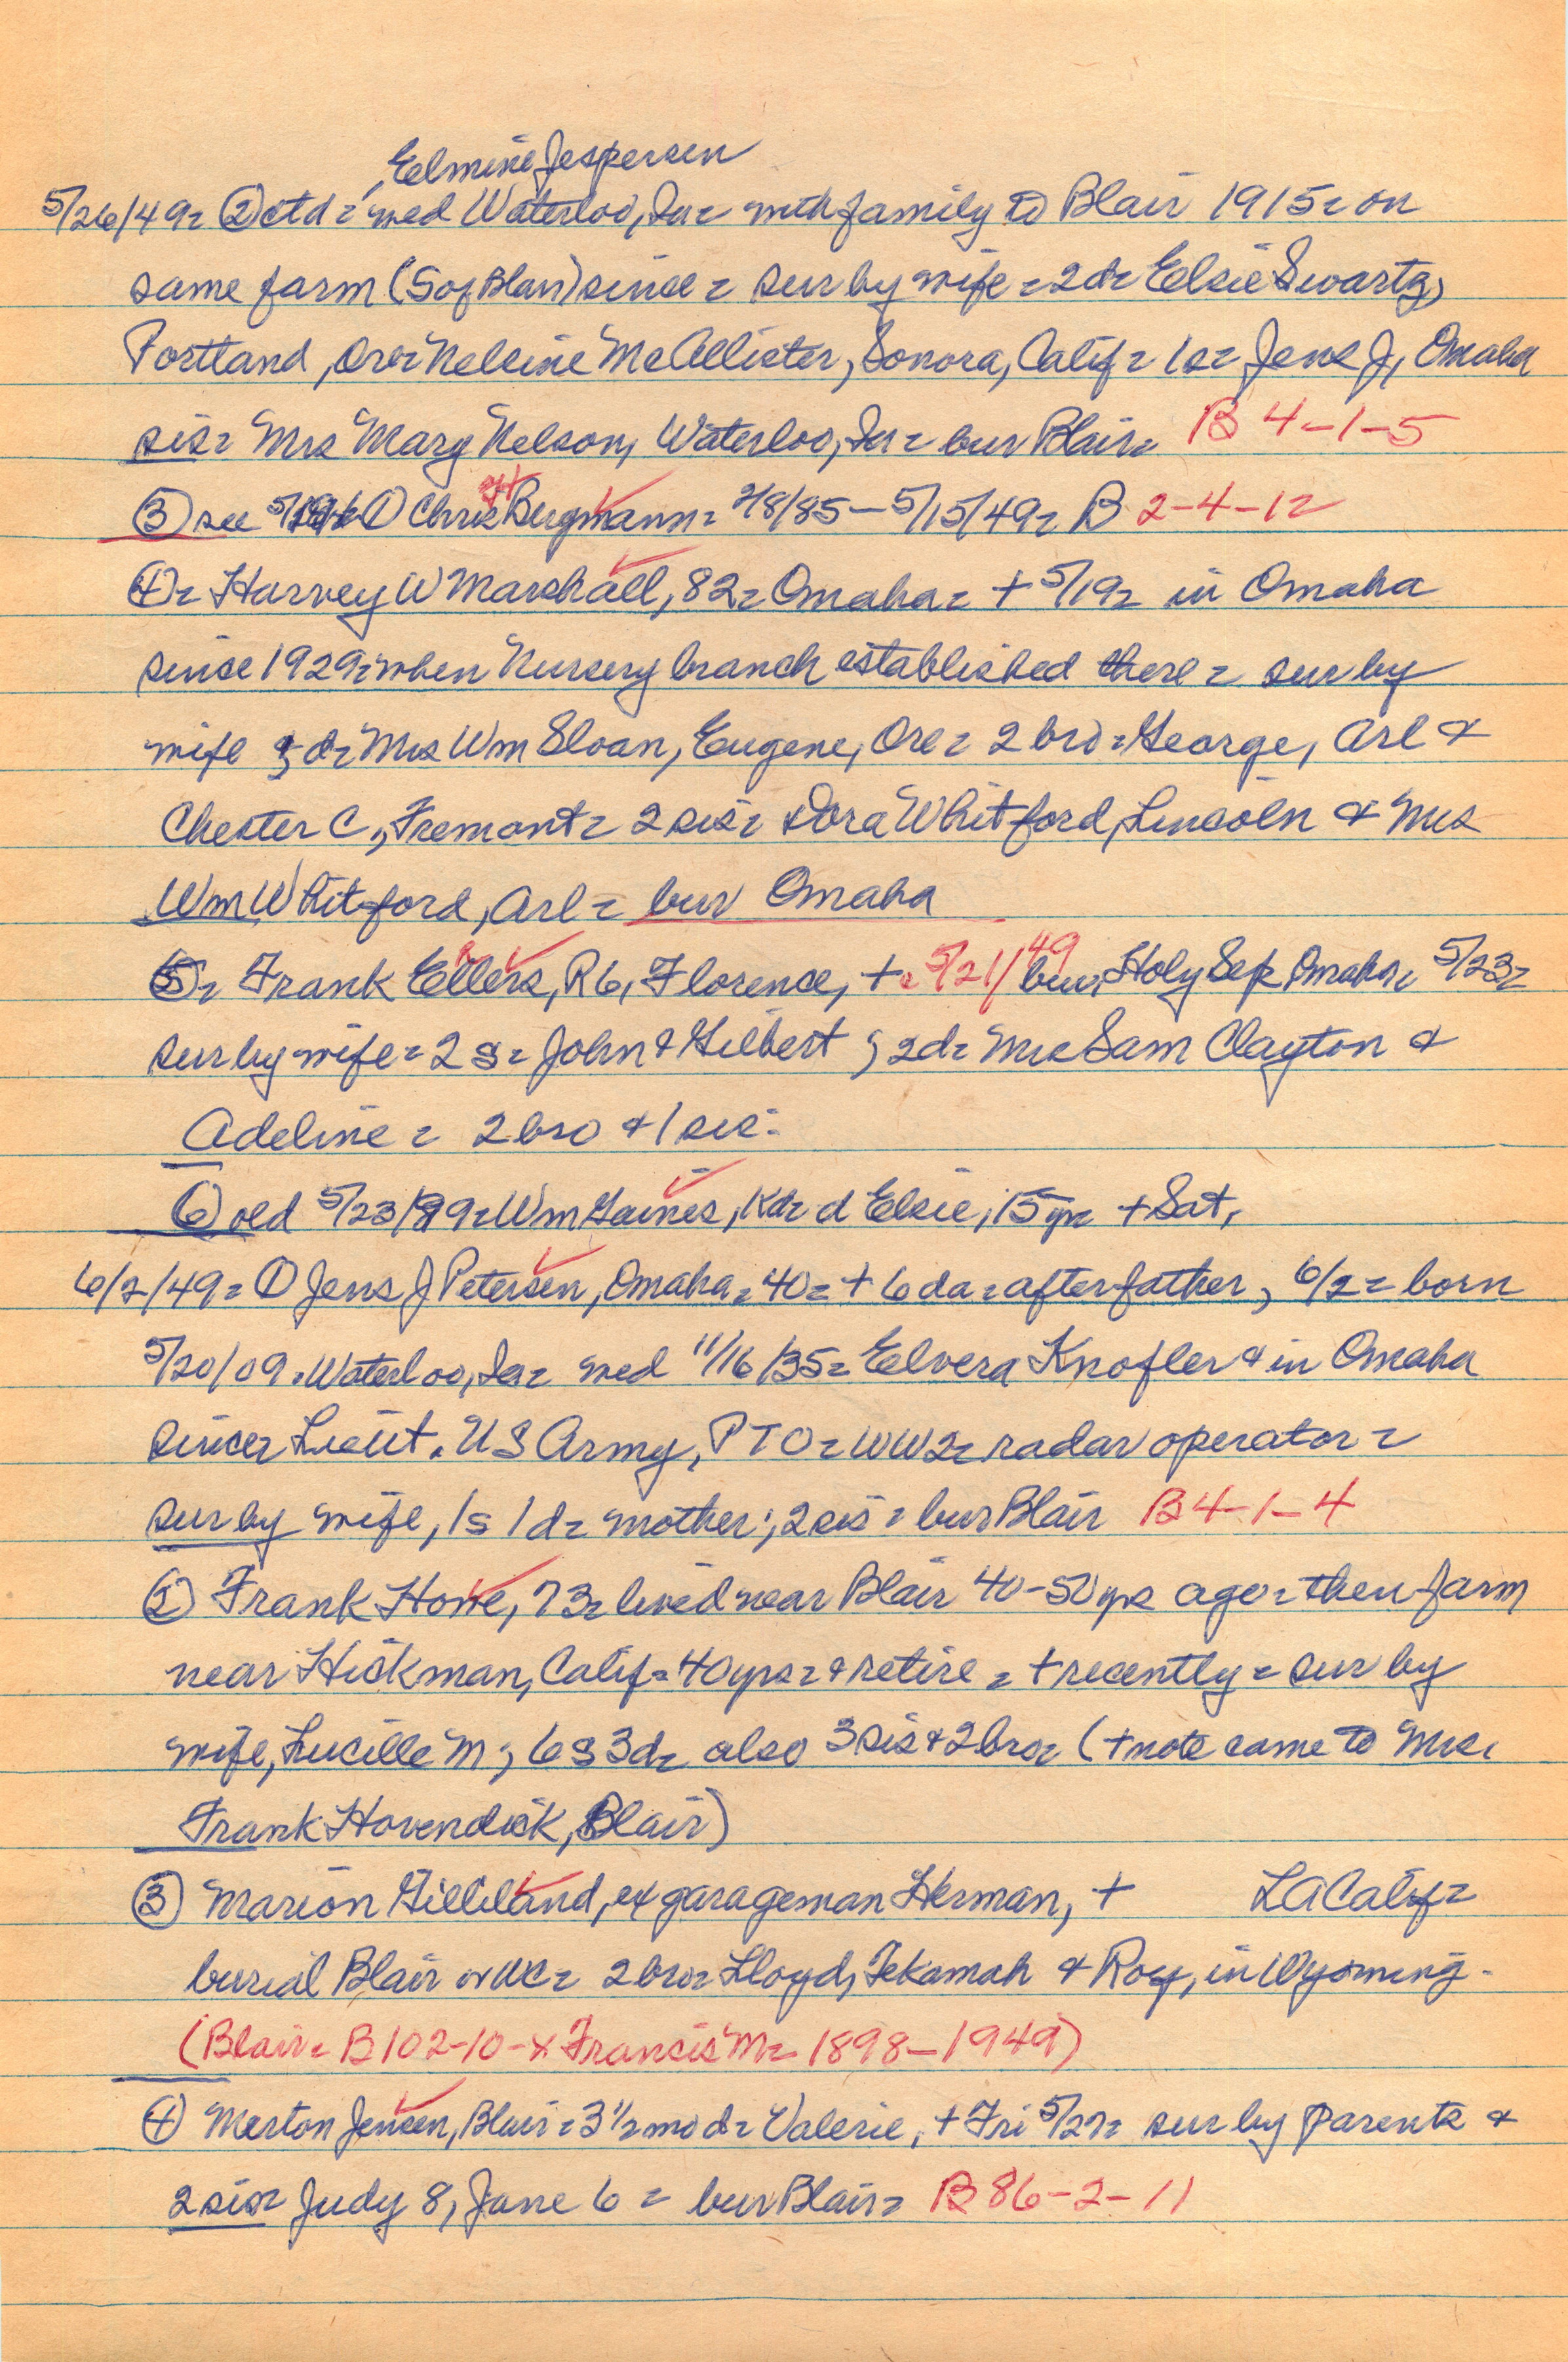 Elmine Jespersen
5/26/49= ② ctd = med Waterloo, Ia= with family to Blair 1915= on
same farm (S of Blair) since = sur by wife = 2d= Elsie Swartz,
Portland, Ore= Nelsine McAllister, Sonora, Calif= 1s= Jens J, Omaha
sis= Mrs Mary Nelson, Waterloo, Ia= bur Blair= B 4-1-5
③ see 5/19 ① Chris Bergmann= 2/8/85-5/15/49= B 2-4-12
④= Harvey W Marshall, 82= Omaha= + 5/19= in Omaha
since 1929= when Nursery branch established there = sur by
wife & d= Mrs Wm Sloan, Eugene, Ore= 2 bro= George, Arl &
Chester C, Fremont= 2 sis= Dora Whitford, Lincoln & Mrs
Wm Whitford, Arl= bur Omaha
⑤= Frank Ellers, R6, Florence, += 5/21/49 bur Holy Sep Omaha= 5/23=
sur by wife= 2 s= John & Gilbert ; 2d= Mrs Sam Clayton &
Adeline = 2 bro & 1 sis=
⑥ old 5/23/99= Wm Gaines, Kd= d Elsie, 15 yr= + Sat,
6/2/49= ① Jens J Petersen, Omaha= 40= + 6 da= after father, 6/2= born
5/20/09= Waterloo, Ia= med 11/16/35= Elvera Knofler & in Omaha
since= Lieut. US Army, PTO= WW2= radar operator =
sur by wife, 1s 1d= mother; 2 sis = bur Blair B 4-1-4
② Frank Howe, 73= lived near Blair 40-50 yrs ago= then farm
near Hickman, Calif= 40 yrs= & retire = + recently = sur by
wife, Lucille M; 6s 3d= also 3 sis & 2 bro= (+ note came to Mrs.
Frank Hovendick, Blair)
③ Marion Gilliland, ex garageman Herman, + LA Calif=
burial Blair or WC= 2 bro= Lloyd, Tekamah & Roy, in Wyoming-
(Blair= B 102-10-x Francis M= 1898-1949)
④ Merton Jensen, Blair= 3 1/2 mo d= Valerie, + Fri 5/27= sur by parents &
2 sis= Judy 8, Jane 6 = bur Blair= B 86-2-11